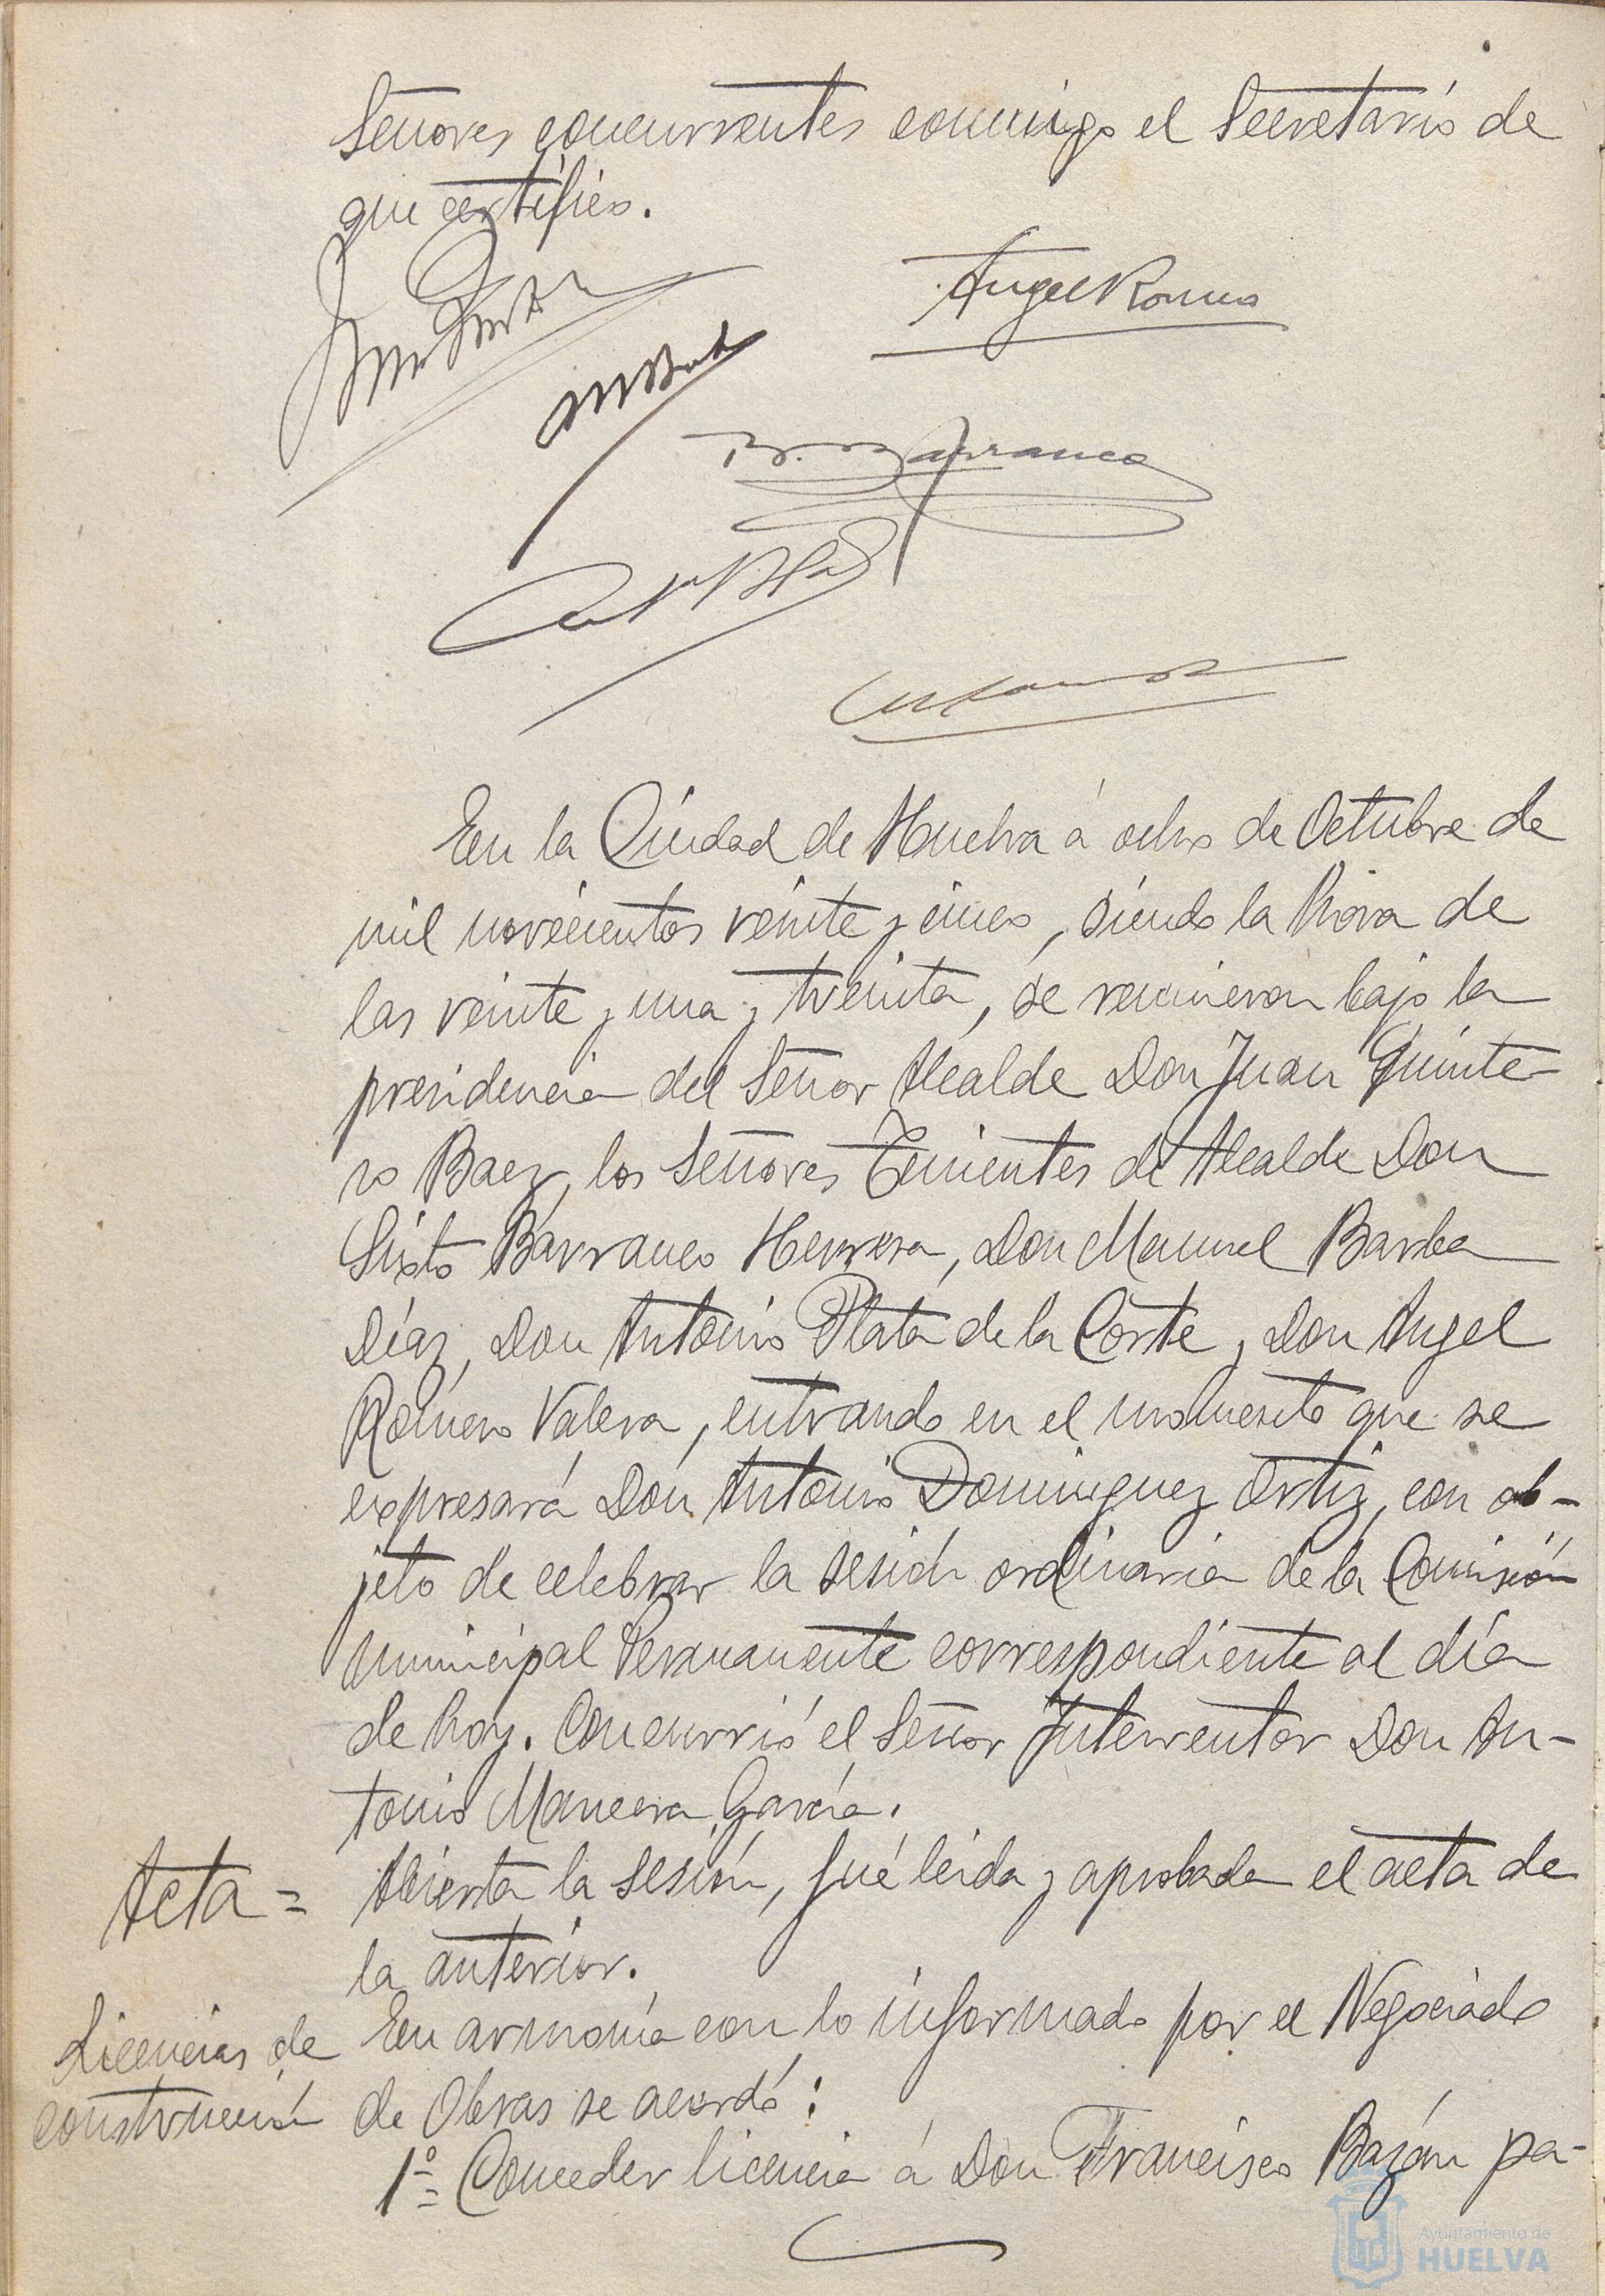 Señores concurrentes conmigo el Secretario de
que certifico.
Angel Romero
Barranco
En la Ciudad de Huelva á ocho de Octubre de
mil novecientos veinte y cinco, siendo la hora de
las veinte y una y treinta, se reunieron bajo la
presidencia del Señor Alcalde Don Juan Quinte-
ro Baez, los Señores Tenientes de Alcalde Don
Sixto Barranco Herrera, Don Manuel Barba
Díaz, Don Antonio Plata de la Corte y Don Angel
Romero Valera, entrando en el momento que se
expresará Don Antonio Dominguez Ortiz, con ob-
jeto de celebrar la sesión ordinaria de la Comisión
Municipal Permanente correspondiente al día
de hoy. Concurrió el Señor Interventor Don An-
tonio Mancera García.
Acta = Abierta la sesión, fué leida y aprobada el acta de
la anterior.
Licencias de En armonía con lo informado por el Negociado
construcción de Obras se acordó:
1º Conceder licencia á Don Francisco Bazán pa-
Ayuntamiento de
HUELVA